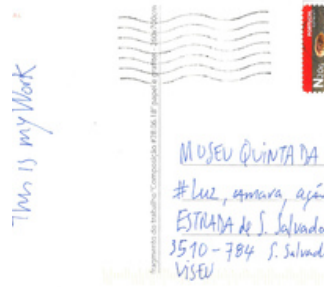 This is my Work
Fragmento do trabalho "Composição #28.06.18" papel e grafite
MUSEU QUINTA DA
#Luz, camara, ação
ESTRADA de S. Salvado
3510-784 S. Salvad
VISEU